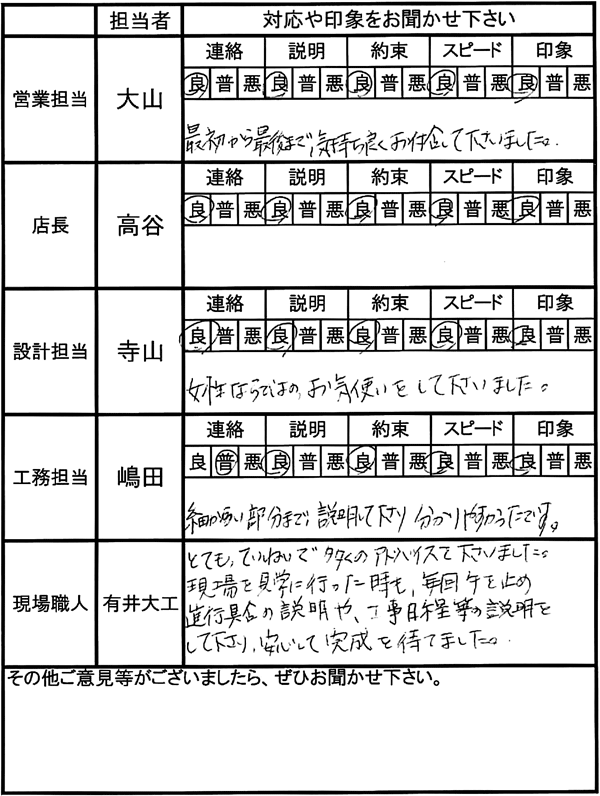 担当者 対応や印象をお聞かせ下さい
営業担当 大山
連絡 説明 約束 スピード 印象
良 普 悪 良 普 悪 良 普 悪 良 普 悪 良 普 悪
最初から最後まで気持ち良くお付合して下さいました。
店長 高谷
連絡 説明 約束 スピード 印象
良 普 悪 良 普 悪 良 普 悪 良 普 悪 良 普 悪
設計担当 寺山
連絡 説明 約束 スピード 印象
良 普 悪 良 普 悪 良 普 悪 良 普 悪 良 普 悪
女性ならではの、お気使いをして下さいました。
工務担当 嶋田
連絡 説明 約束 スピード 印象
良 普 悪 良 普 悪 良 普 悪 良 普 悪 良 普 悪
細かい部分まで説明して下さり分かりやすかったです。
現場職人 有井大工
とても、ていねいで多くのアドバイスを下さいました。
現場を見学に行った時も、毎回手を止め
進行具合の説明や、工事日程等の説明を
して下さり、安心して完成を待てました。
その他ご意見等がございましたら、ぜひお聞かせ下さい。